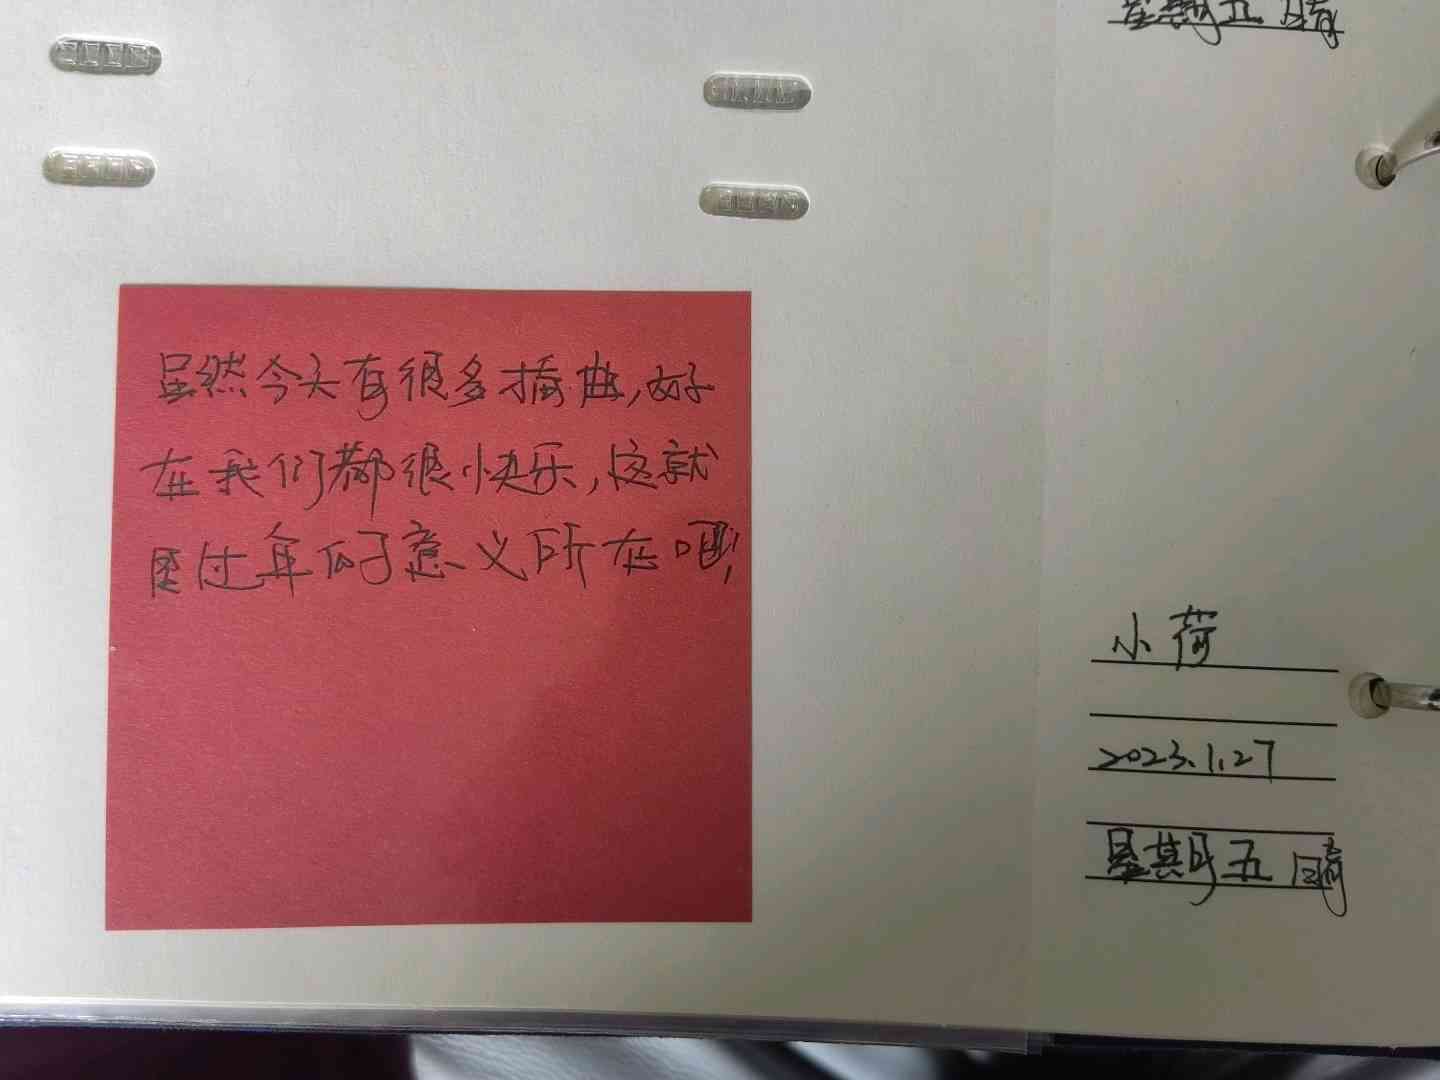 星期五 晴
虽然今天有很多插曲,好
在我们都很快乐,这就
是过年的意义所在吧!
小荷
2023.1.27
星期五 晴